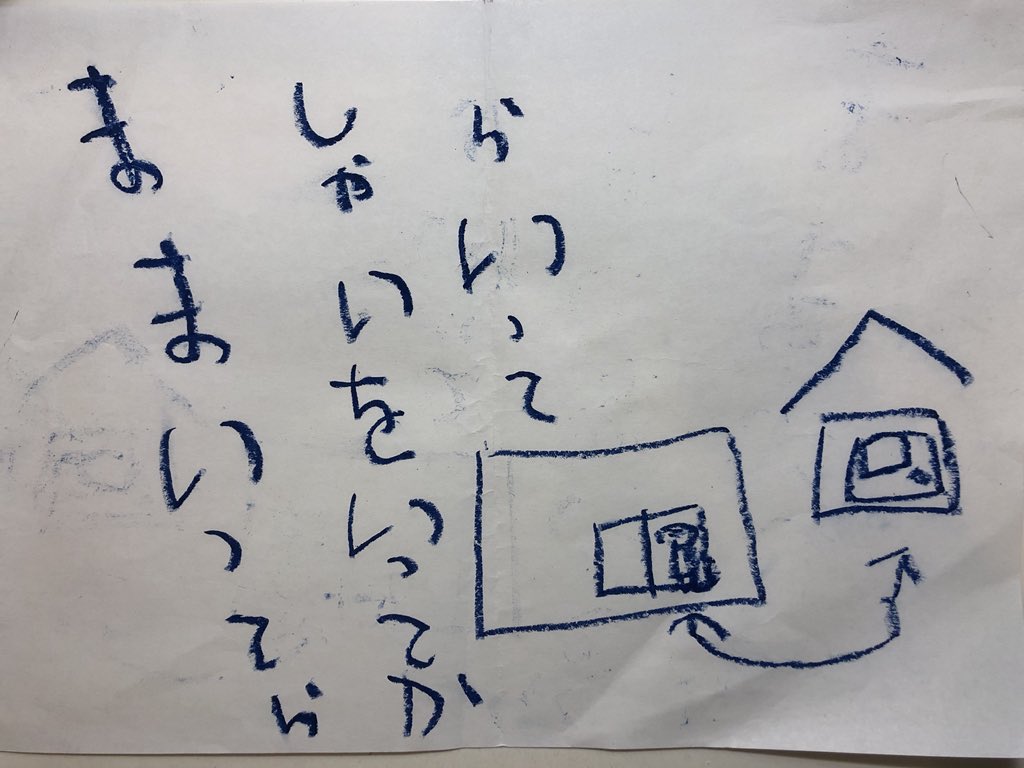 ままいってら
しゃいをいってか
らいって